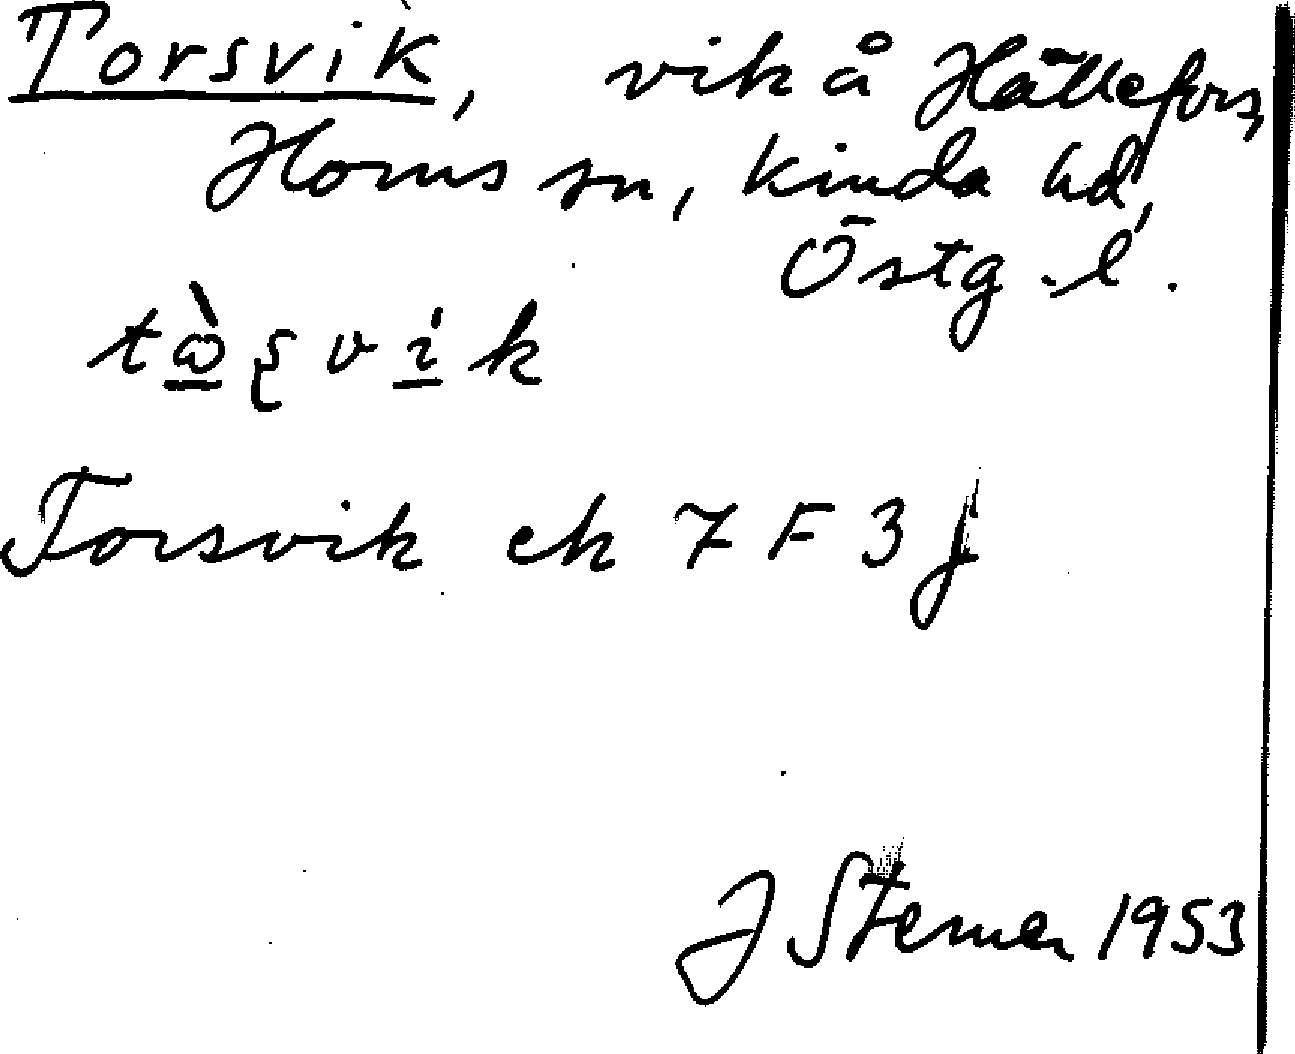 Torsvik, vik å Hällefors,
Horns sn, Kinda hd,
Östg. l.
tὼ̲ʂvi̲k
Torsvik ek 7 F 3 j
J Sterner 1953